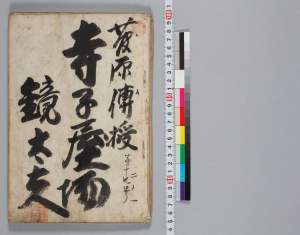 菅原傳授
寺子屋場
鏡太夫